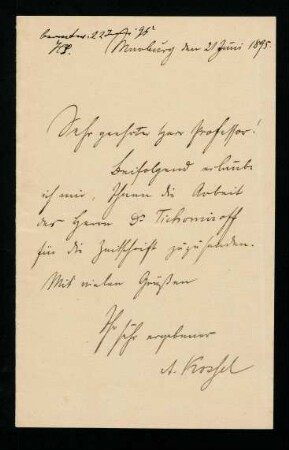 beantw. 22 Juni 95
Marburg den 21 Juni 1895.
Sehr geehrter Herr Professor!
Beifolgend erlaube
ich mir, Ihnen die Arbeit
des Herrn Dr Tichomiroff
für die Zeitschrift zuzusenden.
Mit vielen Grüßen
Ihr sehr ergebener
A. Kossel